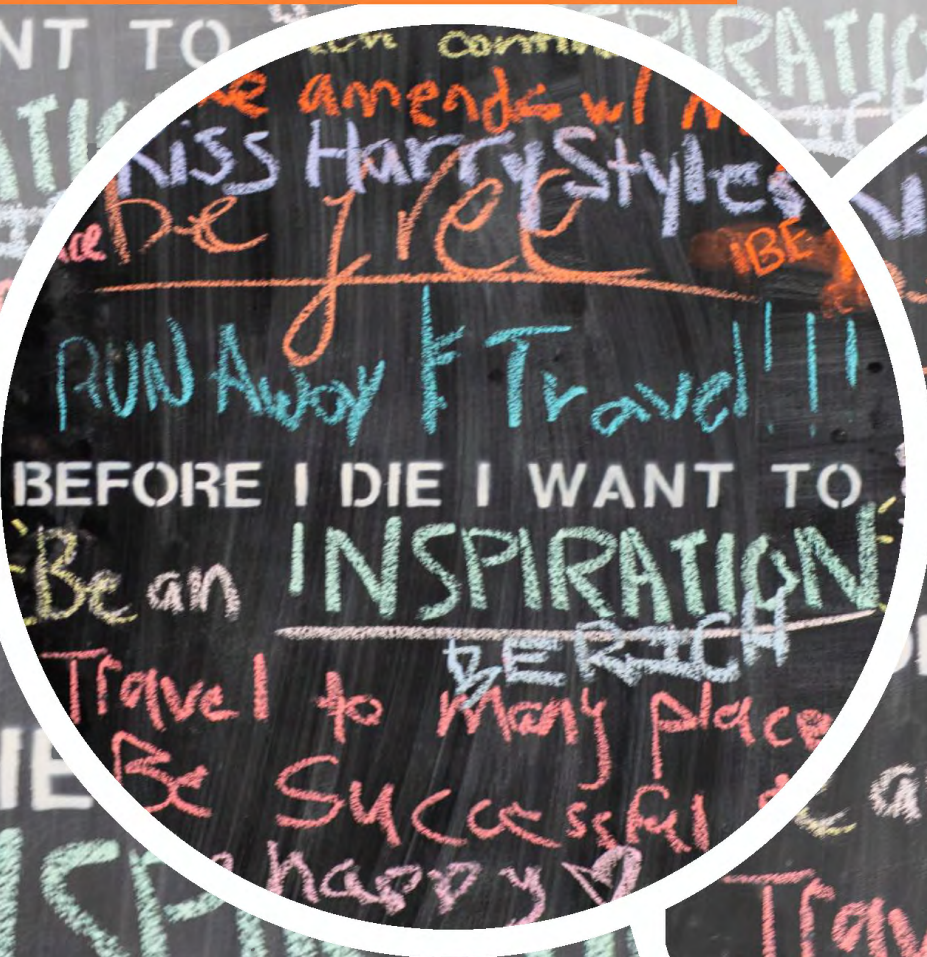 NT TO
amends w/
Kiss Harry Styles
be free
BE
RUN Away & Travel!!!
BEFORE I DIE I WANT TO
Be an INSPIRATION
BE RICH
Travel to Many place
Be Successful
happy